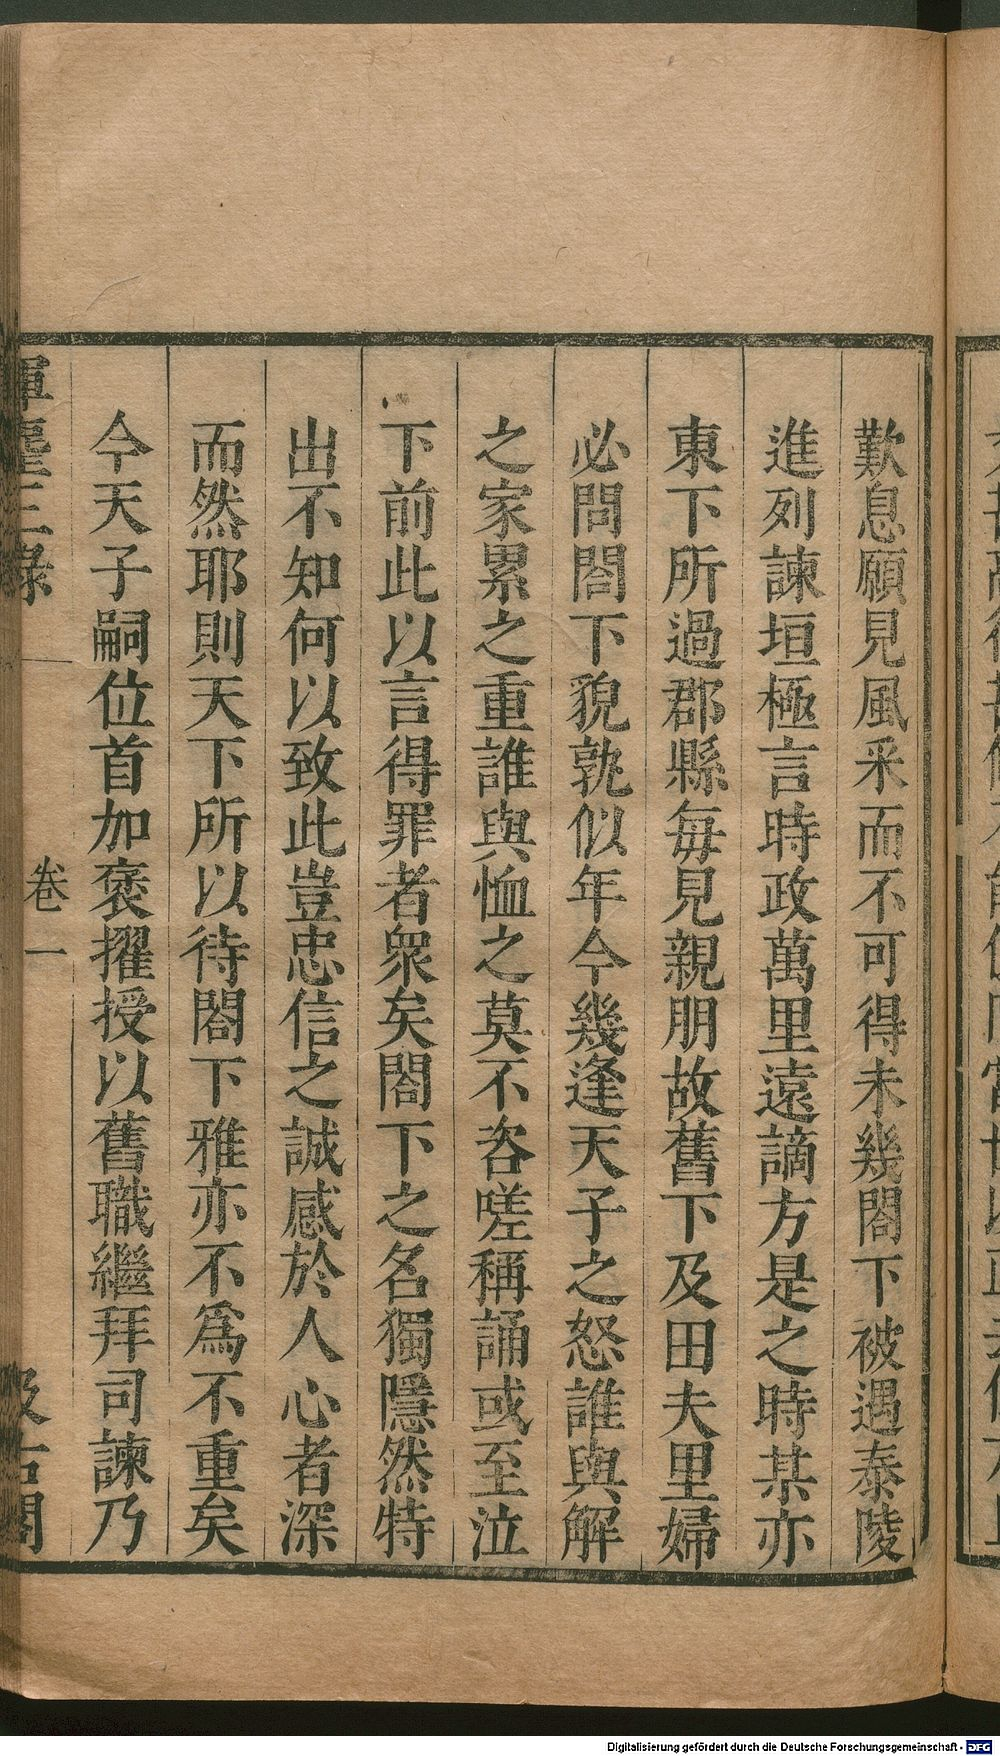 歎息願見風采而不可得未幾閤下被遇泰陵
進列諫垣極言時政萬里遠謫方是之時某亦
東下所過郡縣每見親朋故舊下及田夫里婦
必問閤下貌孰似年今幾逢天子之怒誰與解
之家累之重誰與恤之莫不咨嗟稱誦或至泣
下前此以言得罪者衆矣閤下之名獨隱然特
出不知何以致此豈忠信之誠感於人心者深
而然耶則天下所以待閤下雅亦不爲不重矣
今天子嗣位首加褒擢授以舊職繼拜司諫乃
揮麈三錄 卷一 汲古閣
Digitalisierung gefördert durch die Deutsche Forschungsgemeinschaft - DFG